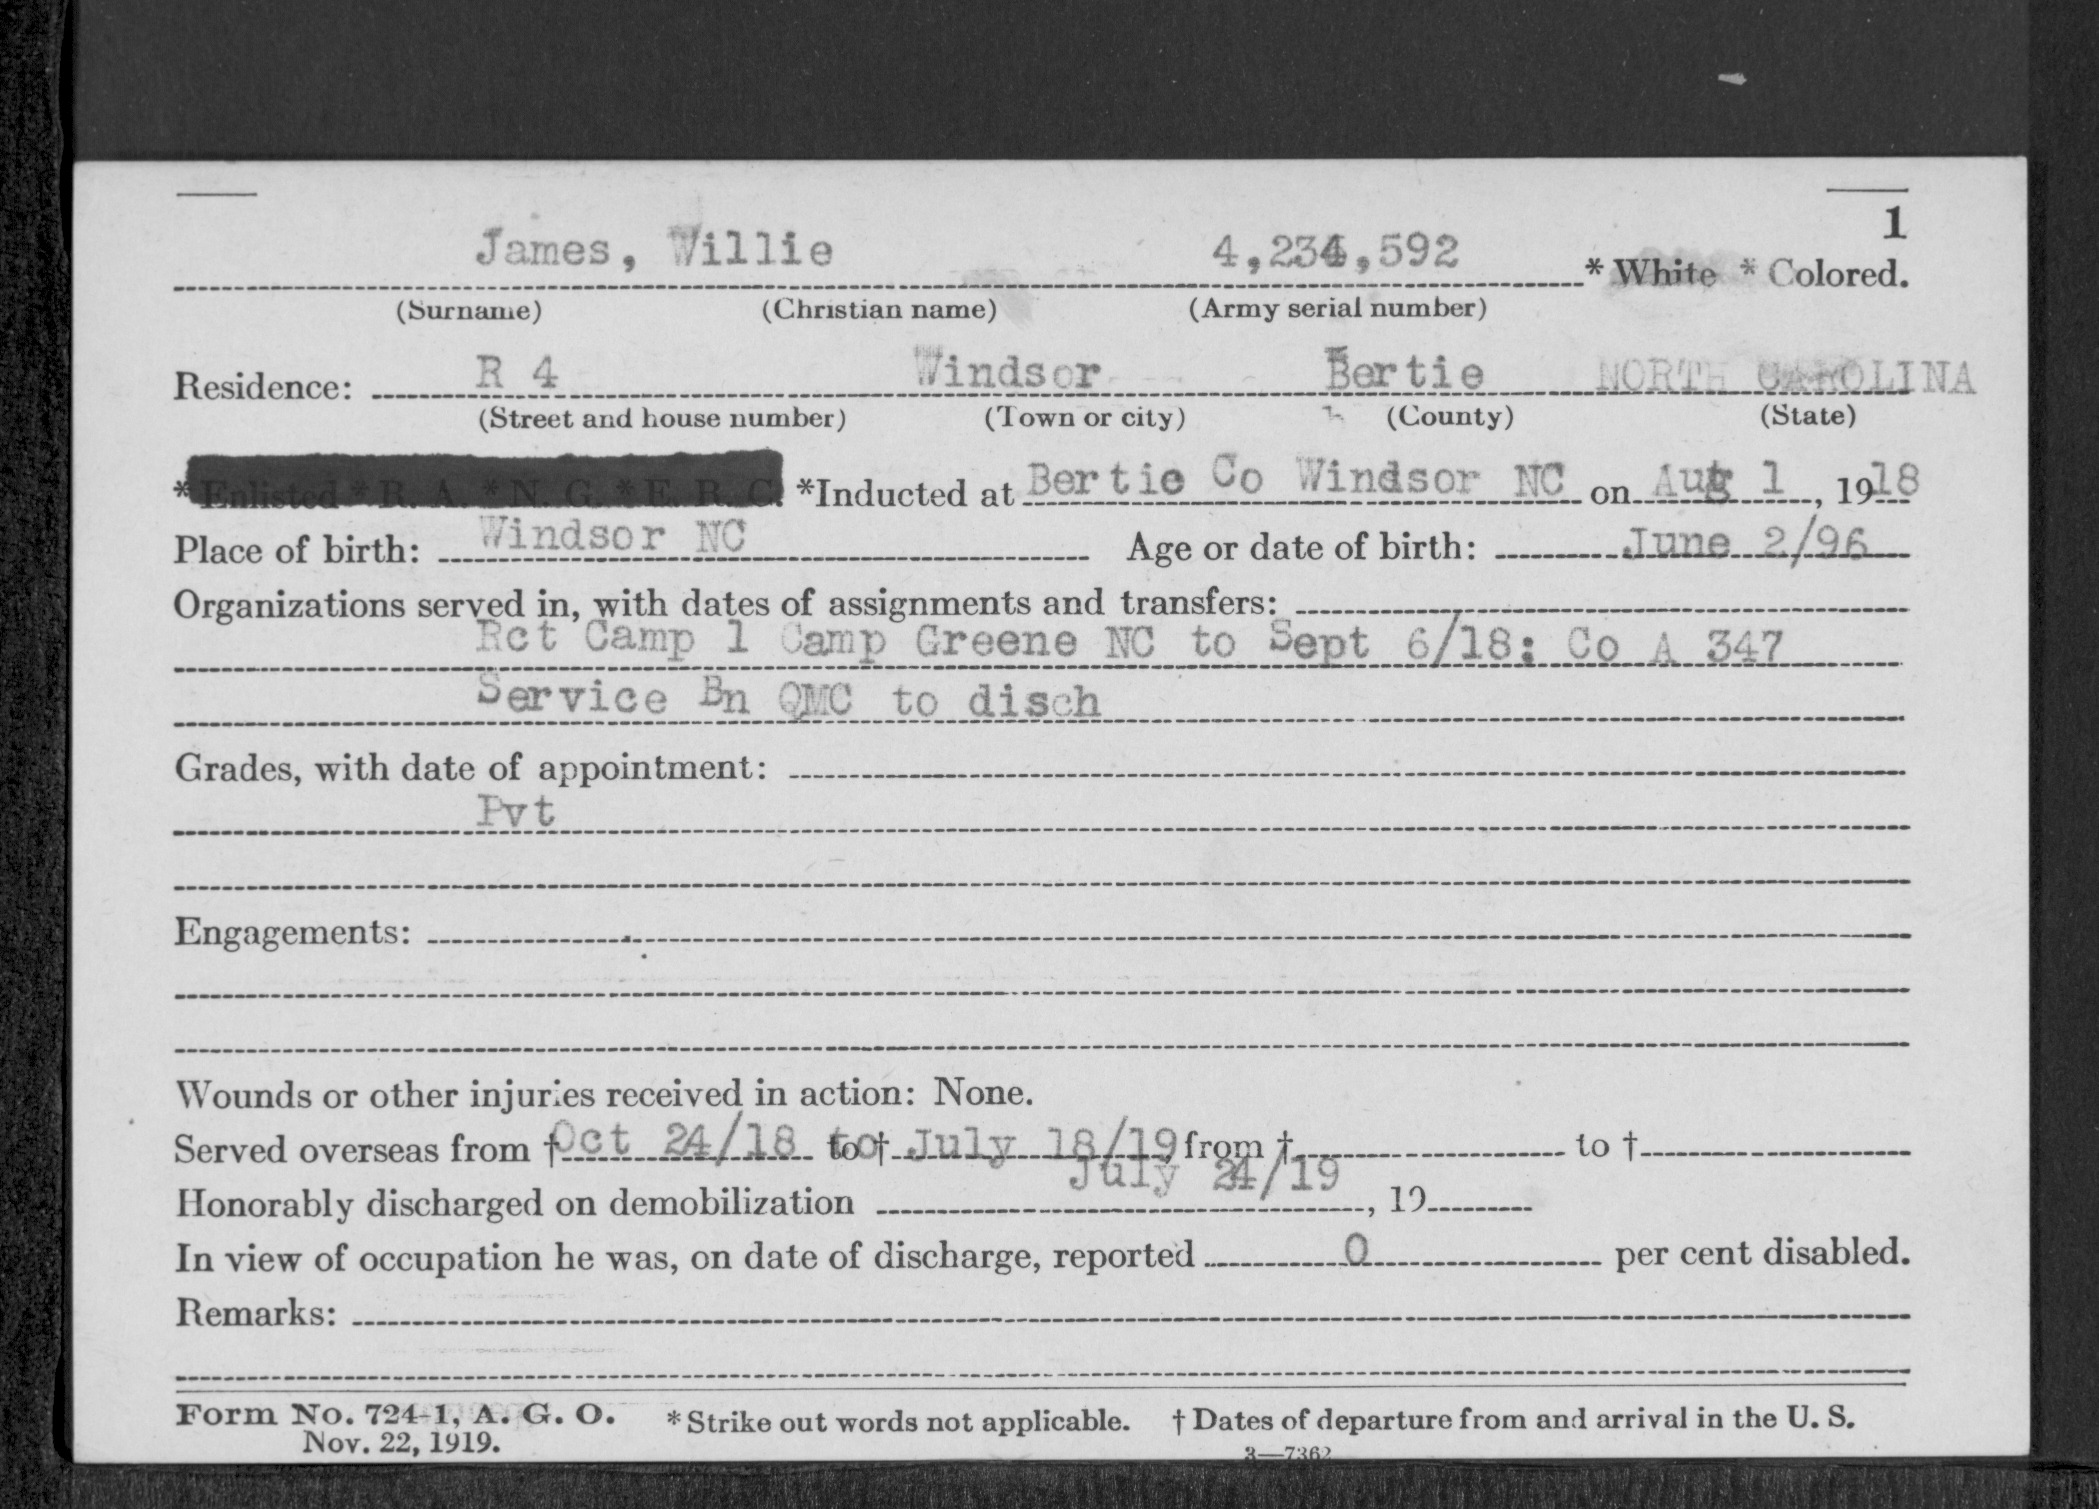 1
James, Willie 4,234,592 * White * Colored.
(Surname) (Christian name) (Army serial number)
Residence: R 4 Windsor Bertie NORTH CAROLINA
(Street and house number) (Town or city) (County) (State)
* Enlisted * R. A. * N. G. * E. R. C. *Inducted at Bertie Co Windsor NC on Aug 1, 1918
Place of birth: Windsor NC Age or date of birth: June 2/96
Organizations served in, with dates of assignments and transfers:
Rct Camp 1 Camp Greene NC to Sept 6/18: Co A 347
Service Bn QMC to disch
Grades, with date of appointment:
Pvt
Engagements:
Wounds or other injuries received in action: None.
Served overseas from † Oct 24/18 to † July 18/19 from † to †
Honorably discharged on demobilization July 24/19, 19
In view of occupation he was, on date of discharge, reported 0 per cent disabled.
Remarks:
Form No. 724-1, A. G. O. * Strike out words not applicable. † Dates of departure from and arrival in the U. S.
Nov. 22, 1919. 3—7362